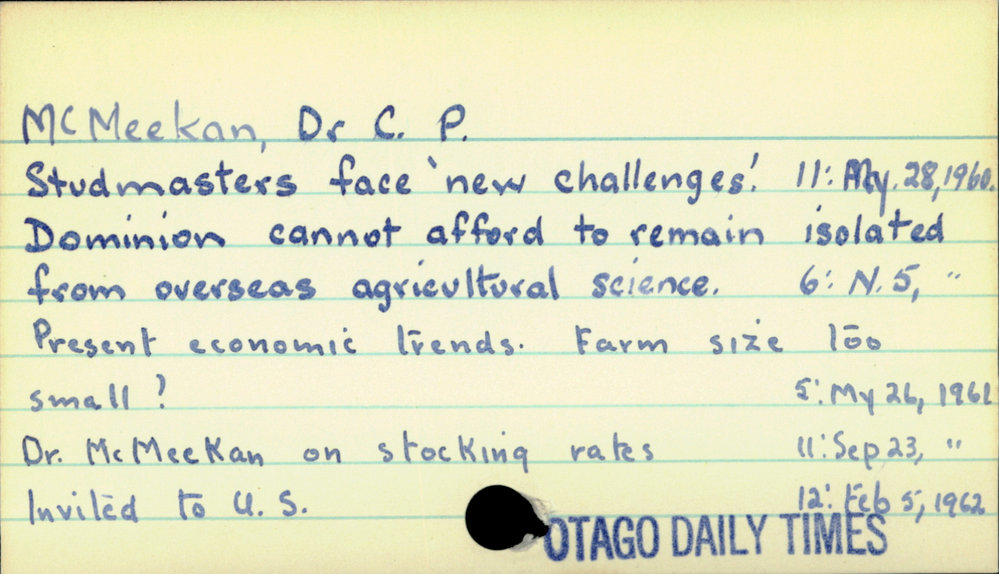 McMeekan, Dr C. P.
Studmasters face 'new challenges'. 11: My. 28, 1960.
Dominion cannot afford to remain isolated
from overseas agricultural science. 6: N. 5, "
Present economic trends. Farm size too
small? 5: My 26, 1961
Dr. McMeeKan on stocking rates 11: Sep 23, "
Invited to U. S. 12: Feb 5, 1962
OTAGO DAILY TIMES